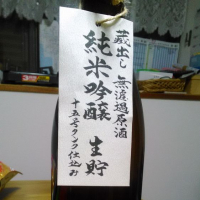 蔵出し 無濾過原酒
純米吟醸 生貯
十五号タンク仕込み